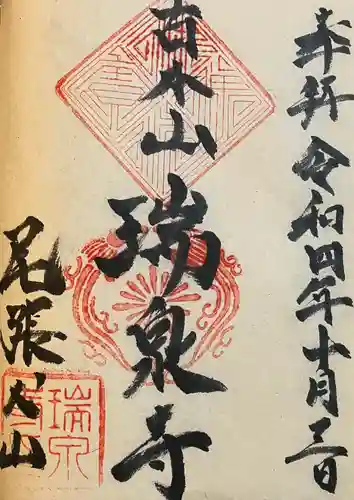 奉拝 令和四年十月三日
山 瑞泉寺
尾張犬山
瑞泉寺